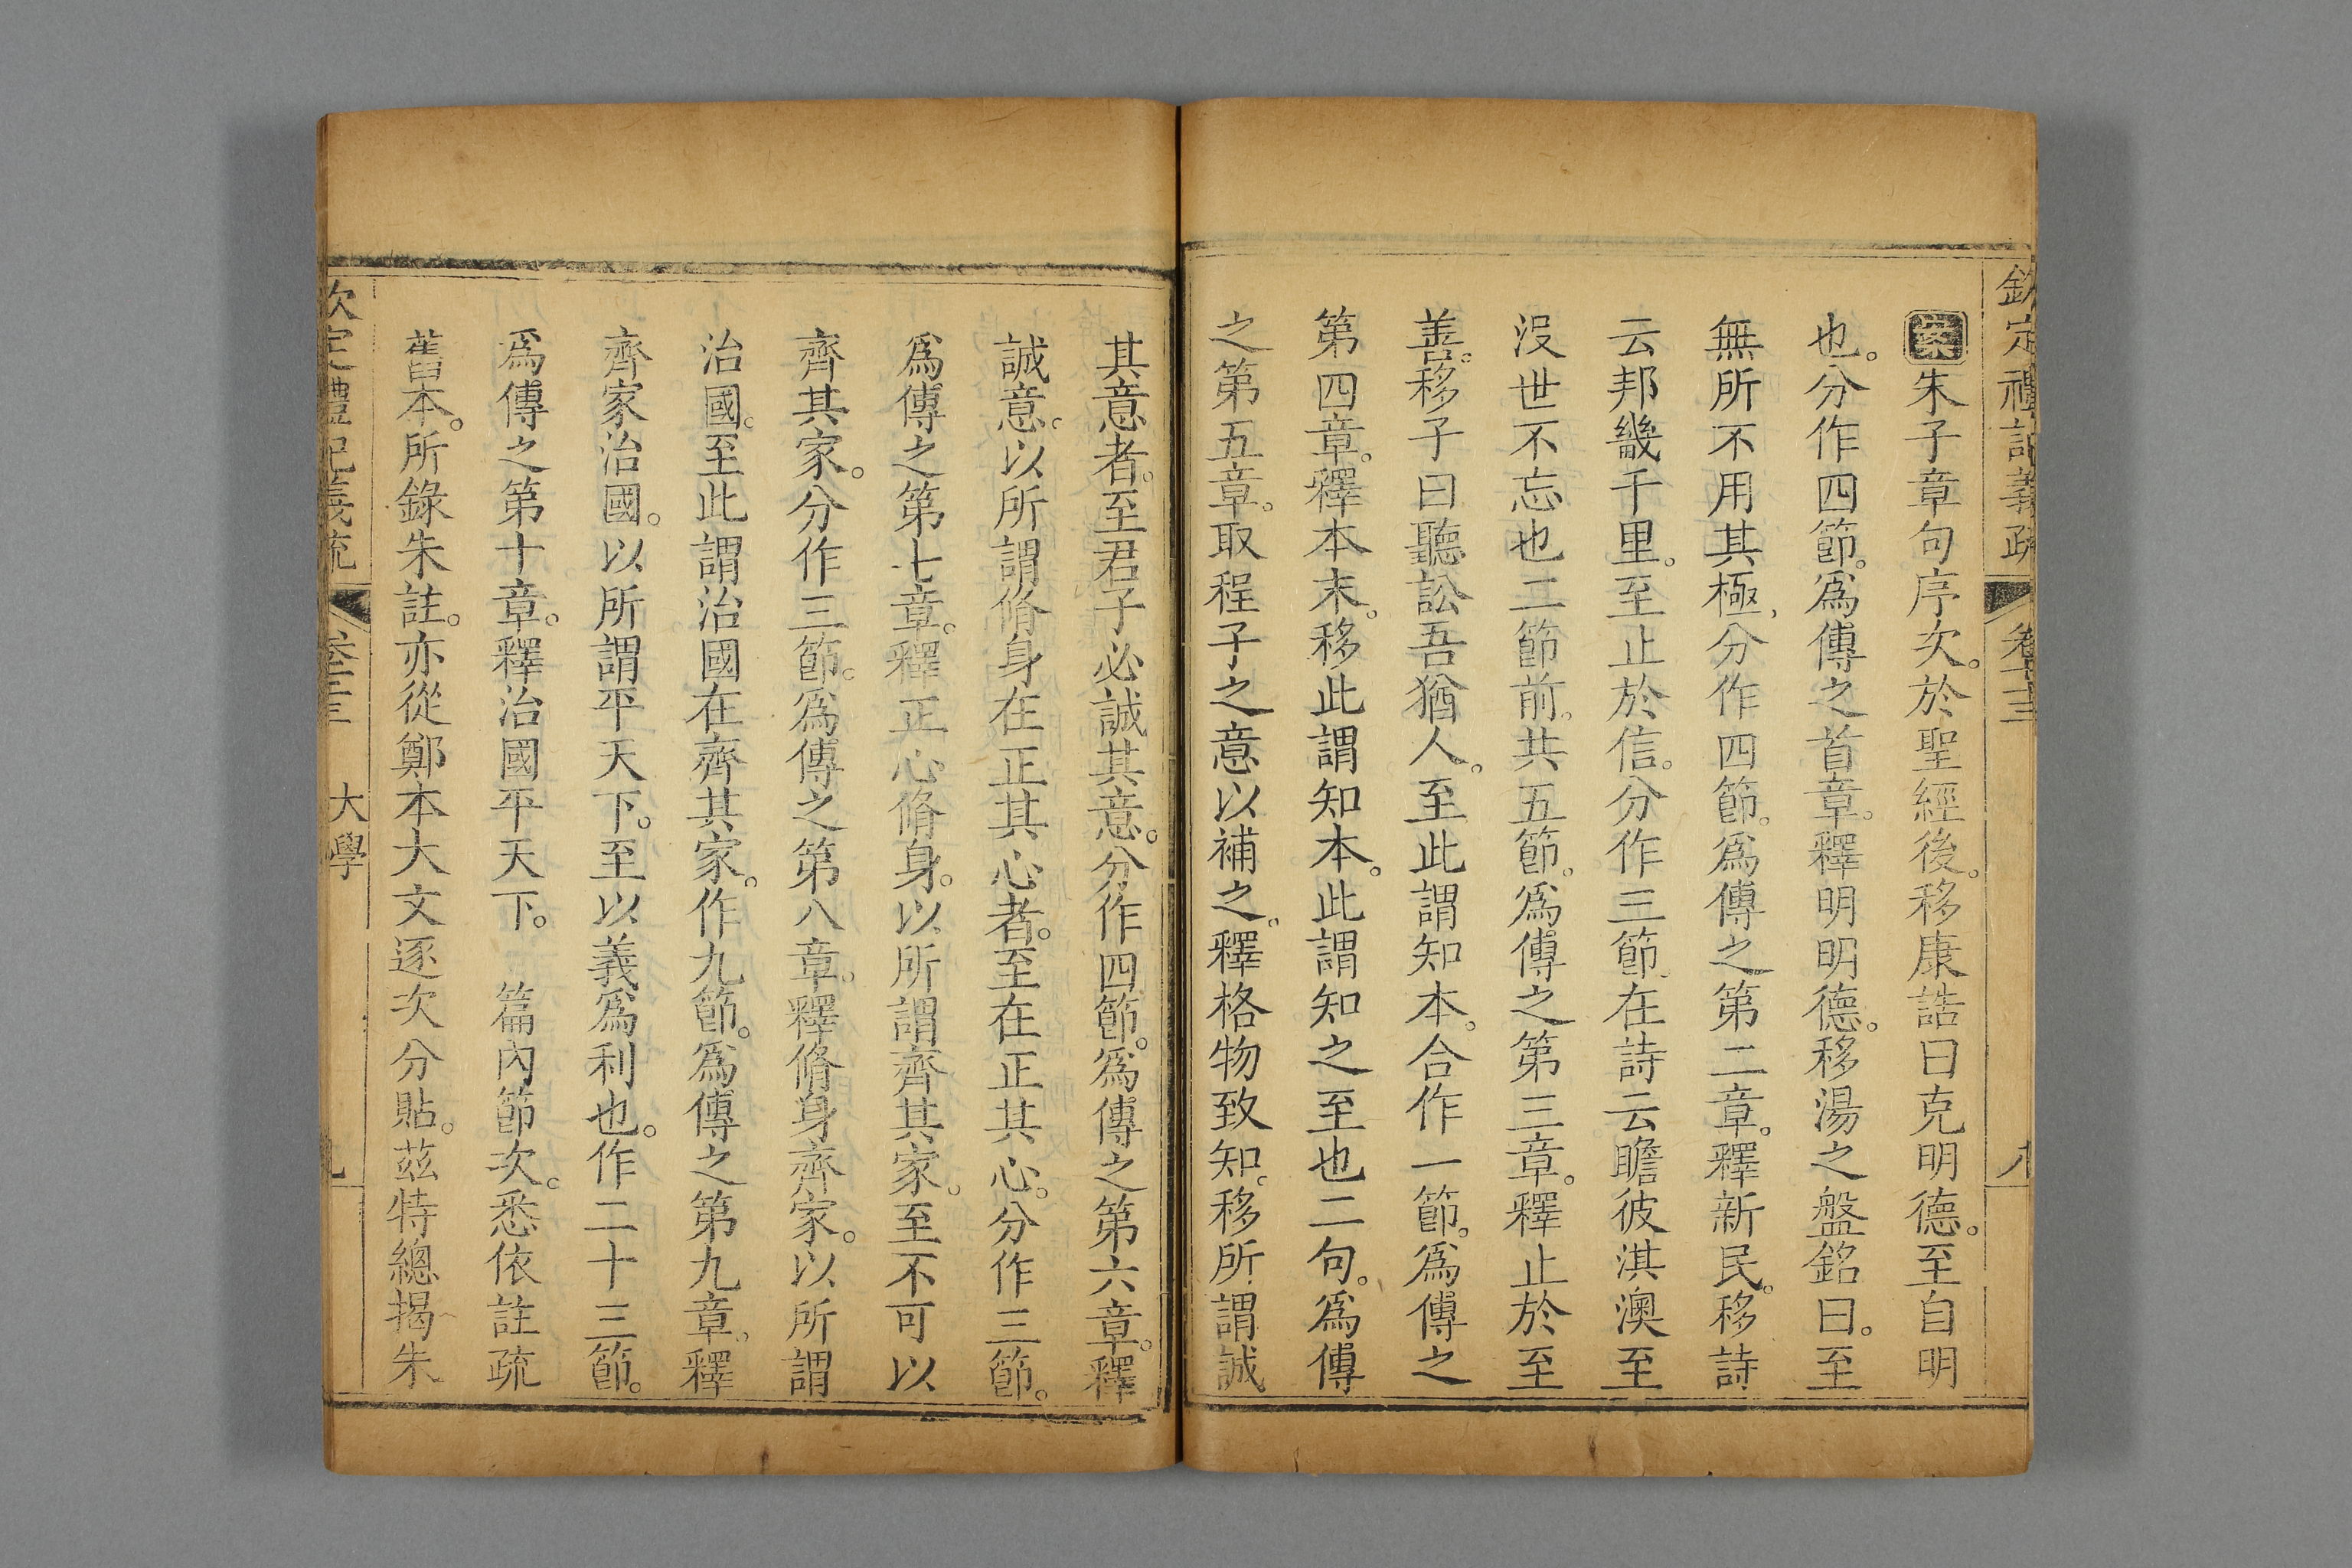 欽定禮記義疏 卷七十三 八
案朱子章句序次。於聖經後。移康誥曰克明德。至自明
也。分作四節。爲傳之首章。釋明明德。移湯之盤銘曰。至
無所不用其極、分作四節。爲傳之第二章。釋新民。移詩
云邦畿千里。至止於信。分作三節。在詩云瞻彼淇澳至
沒世不忘也二節前。共五節。爲傳之第三章。釋止於至
善。移子曰聽訟吾猶人。至此謂知本。合作一節。爲傳之
第四章。釋本末。移此謂知本。此謂知之至也二句。爲傳
之第五章。取程子之意以補之。釋格物致知。移所謂誠
其意者。至君子必誠其意。分作四節。爲傳之第六章。釋
誠意。以所謂脩身在正其心者。至在正其心。分作三節。
爲傳之第七章。釋正心脩身。以所謂齊其家。至不可以
齊其家。分作三節。爲傳之第八章。釋脩身齊家。以所謂
治國。至此謂治國在齊其家。作九節。爲傳之第九章。釋
齊家治國。以所謂平天下。至以義爲利也。作二十三節。
爲傳之第十章。釋治國平天下。 篇內節次。悉依註疏
舊本。所錄朱註。亦從鄭本大文逐次分貼。茲特總揭朱
欽定禮記義疏 大學